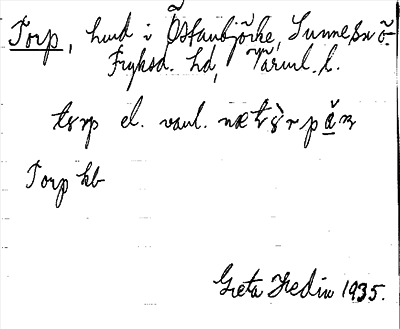 Torp, hmd i Östanbjörke, Sunne sn Ö.
Fryksd. hd, Värml. l.
tɷrp el. vanl. nætɷ̀rpa̲n
Torp kb
Greta Hedin 1935.